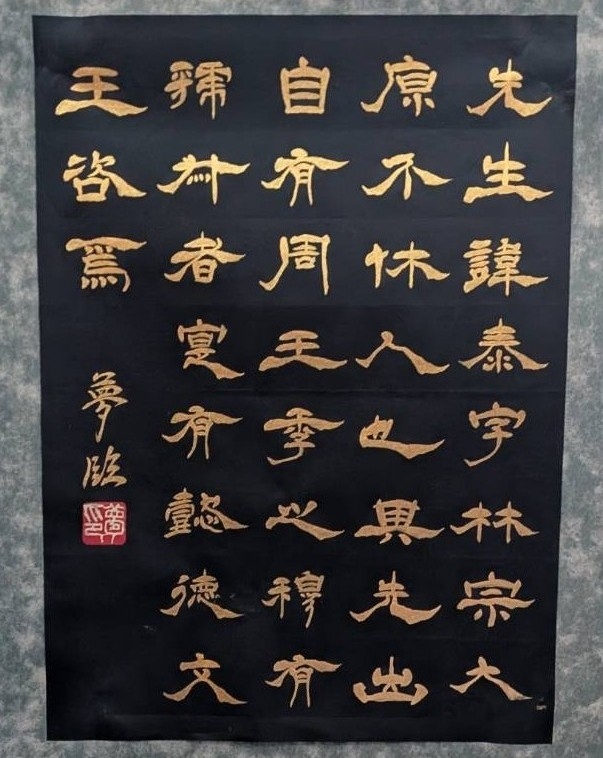 先生諱泰字林宗大
原介休人也其先出
自有周王季之穆有
虢叔者寔有懿德文
王咨焉
夢臨